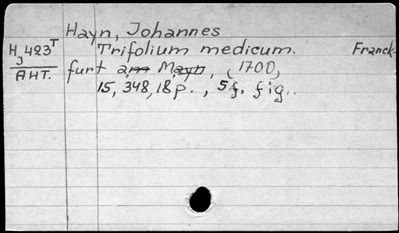 Hayn, Johannes
H 423 T Trifolium medicum. Franck-
3
AHT. furt a/m Mayn, (1700)
15, 348, 18 p., 5 f. fig..